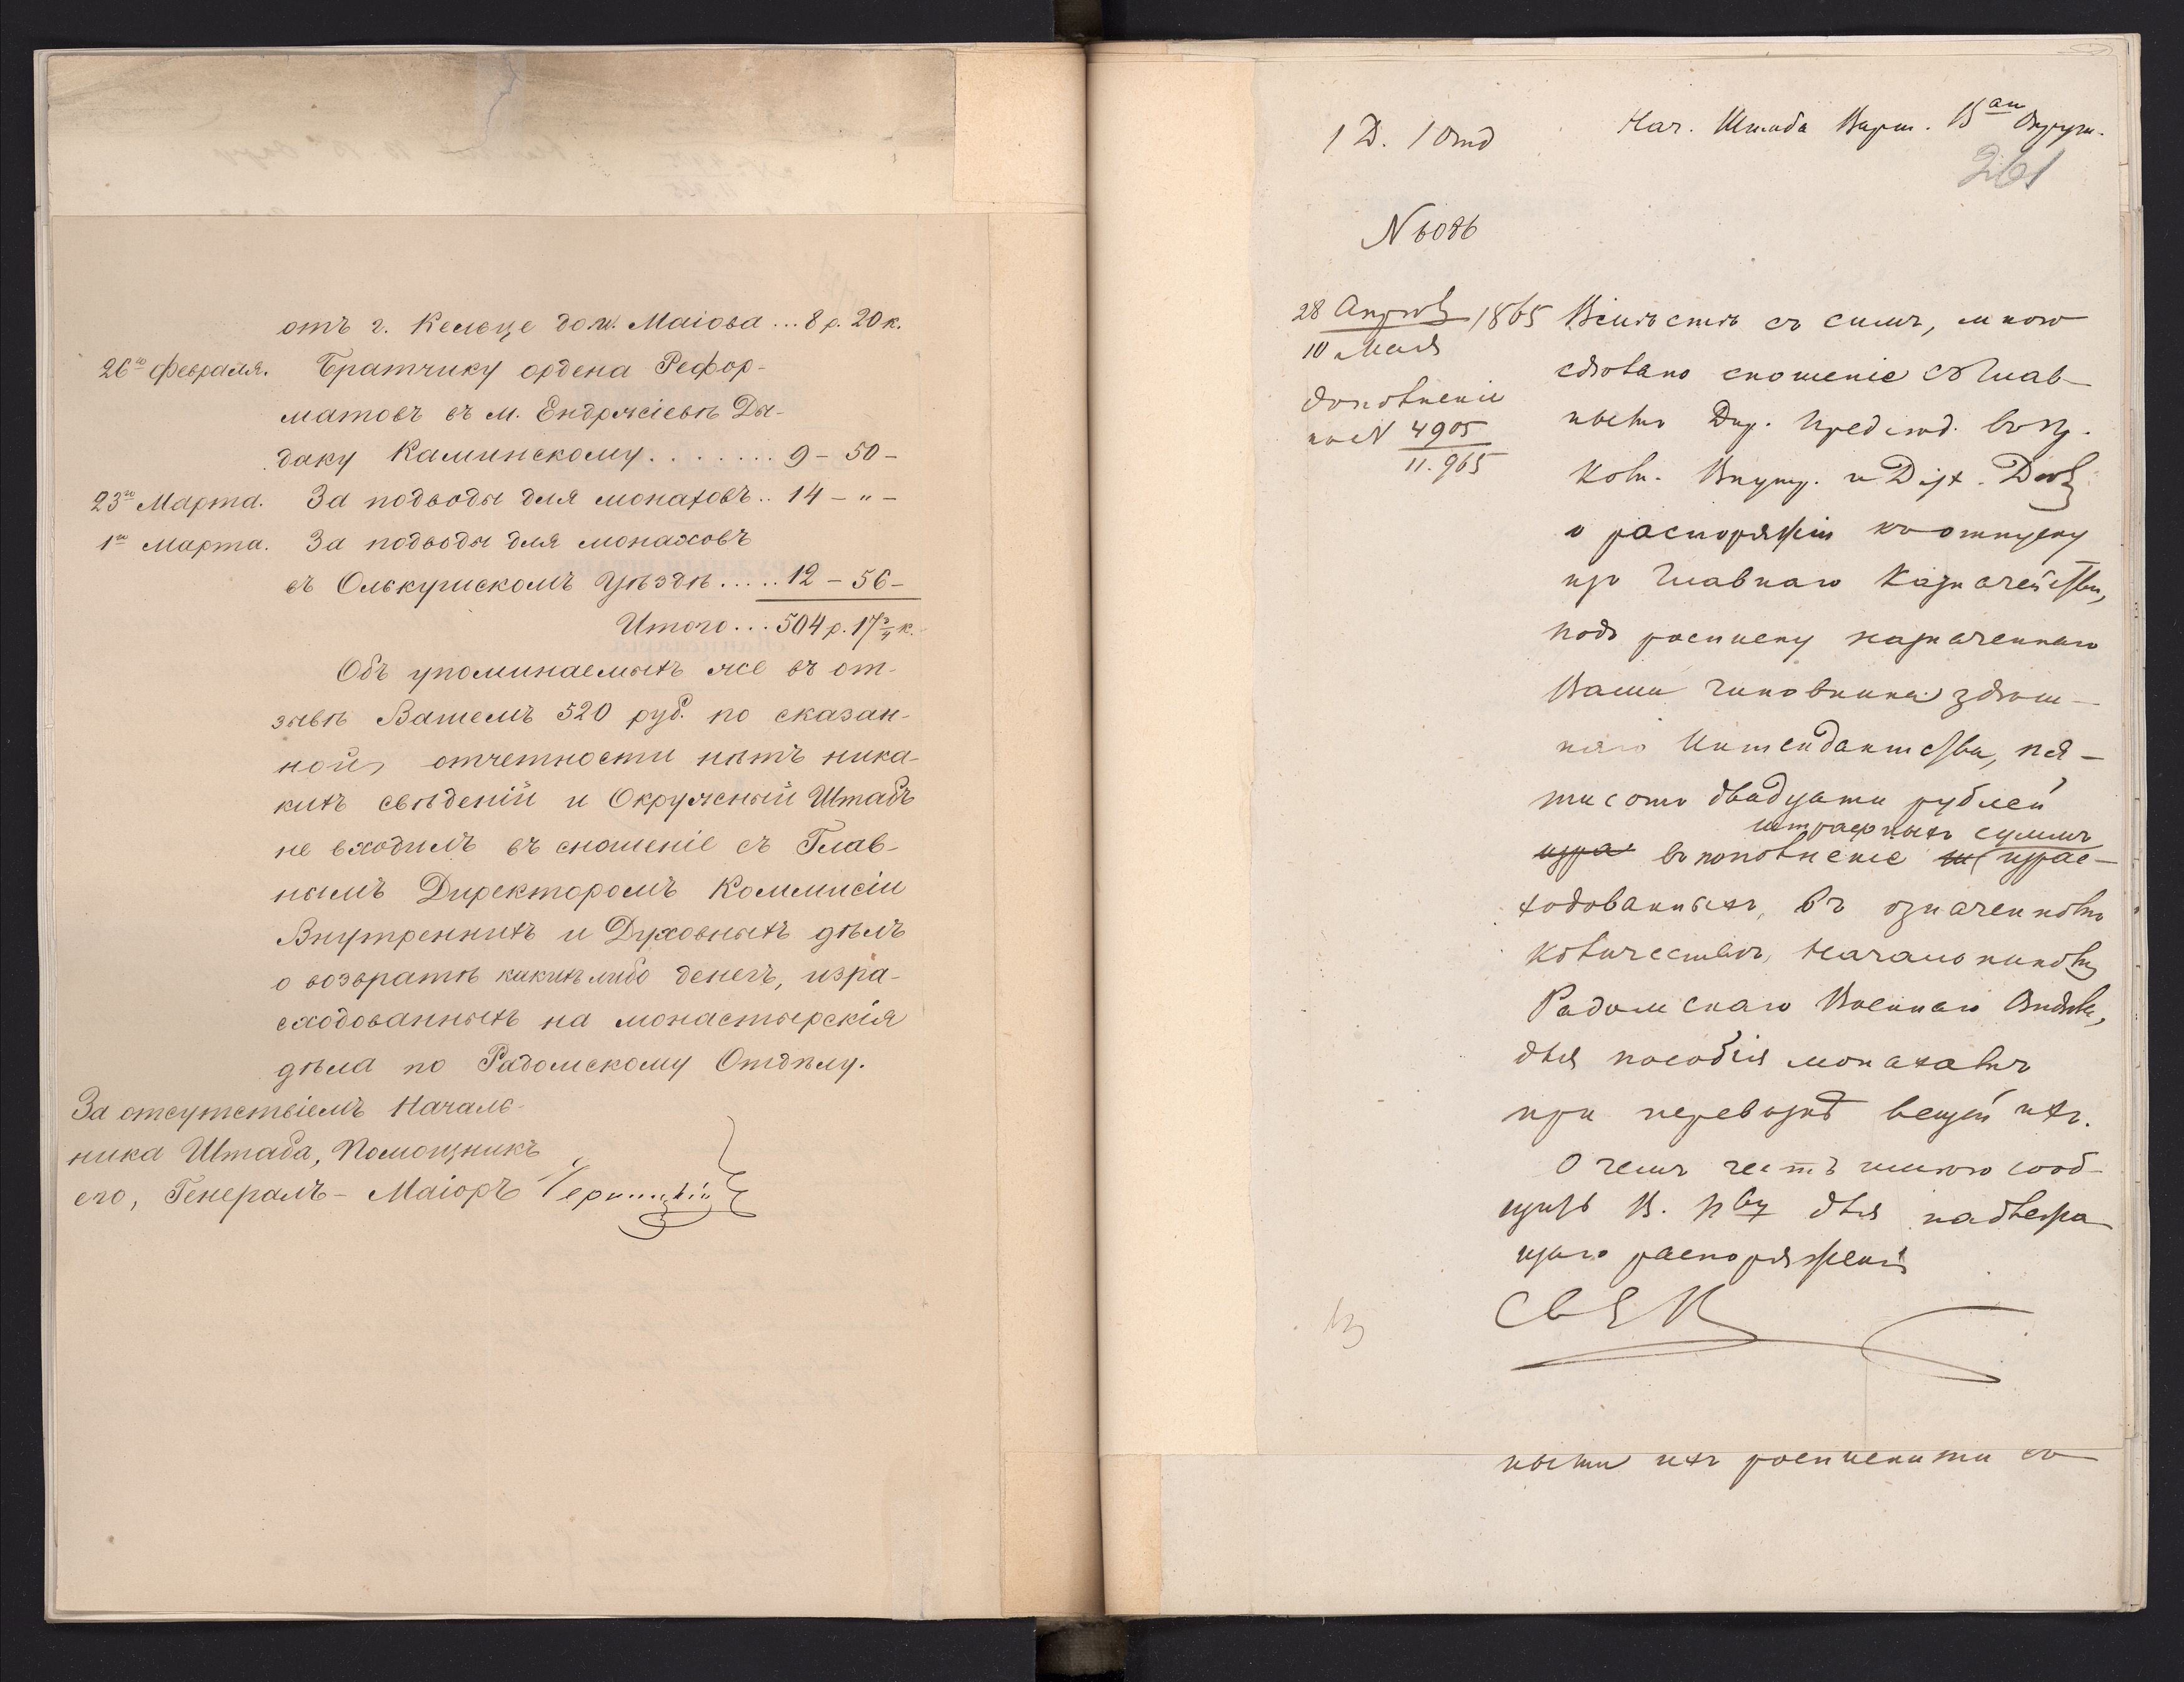 отъ г. Кельце до м. Маіова ... 8 р. 20 к.
26го Февраля. Братчику ордена Рефор-
матовъ въ м. Ендржіевѣ Ды-
даку Каминскому ........ 9 – 50 –
23го Марта. За подводы для монаховъ .. 14 – " –
1го Марта. За подводы для монаховъ
въ Олькушскомъ Уѣздѣ ..... 12 – 56 –
Итого ... 504 р. 17 3/4 к.
Объ упоминаемыхъ же въ от-
зывѣ Вашемъ 520 руб. по сказан-
ной отчетности нѣтъ ника-
кихъ свѣденій и Окружный Штабъ
не входилъ въ сношеніе съ Глав-
нымъ Директоромъ Коммисіи
Внутреннихъ и Духовныхъ дѣлъ
о возвратѣ какихъ либо денегъ, изра-
сходованныхъ на монастырскія
дѣла по Радомскому Отдѣлу.
За отсутствіемъ Началь-
ника Штаба, Помощникъ
его, Генералъ-Маіоръ
1 Д. 1 Отд
Нач. Штаба Варш. В. Округа.
261
N 6086
28 Апрѣля / 10 Мая 1865
дополненіе
къ N 4905
11.965
Вмѣстѣ съ симъ, мною
сдѣлано сношеніе съ Глав-
нымъ Дир. Предсѣд. въ Пр.
Ком. Внутр. и Дух. Дѣлъ
о распоряженіи къ отпуску
изъ Главнаго Казначейства,
подъ росписку назначеннаго
Вами чиновника здѣш-
няго Интендантства, пя-
тисотъ двадцати рублей
штрафныхъ суммъ
изра въ пополненіе израс-
ходованныхъ, въ означенномъ
количествѣ, Начальникомъ
Радомскаго Военнаго Отдѣла,
для пособія монахамъ
при перевозкѣ вещей ихъ.
О чемъ честь имѣю сооб-
щить В. Пву для надлежа
щаго распоряженія
ными ихъ росписками съ